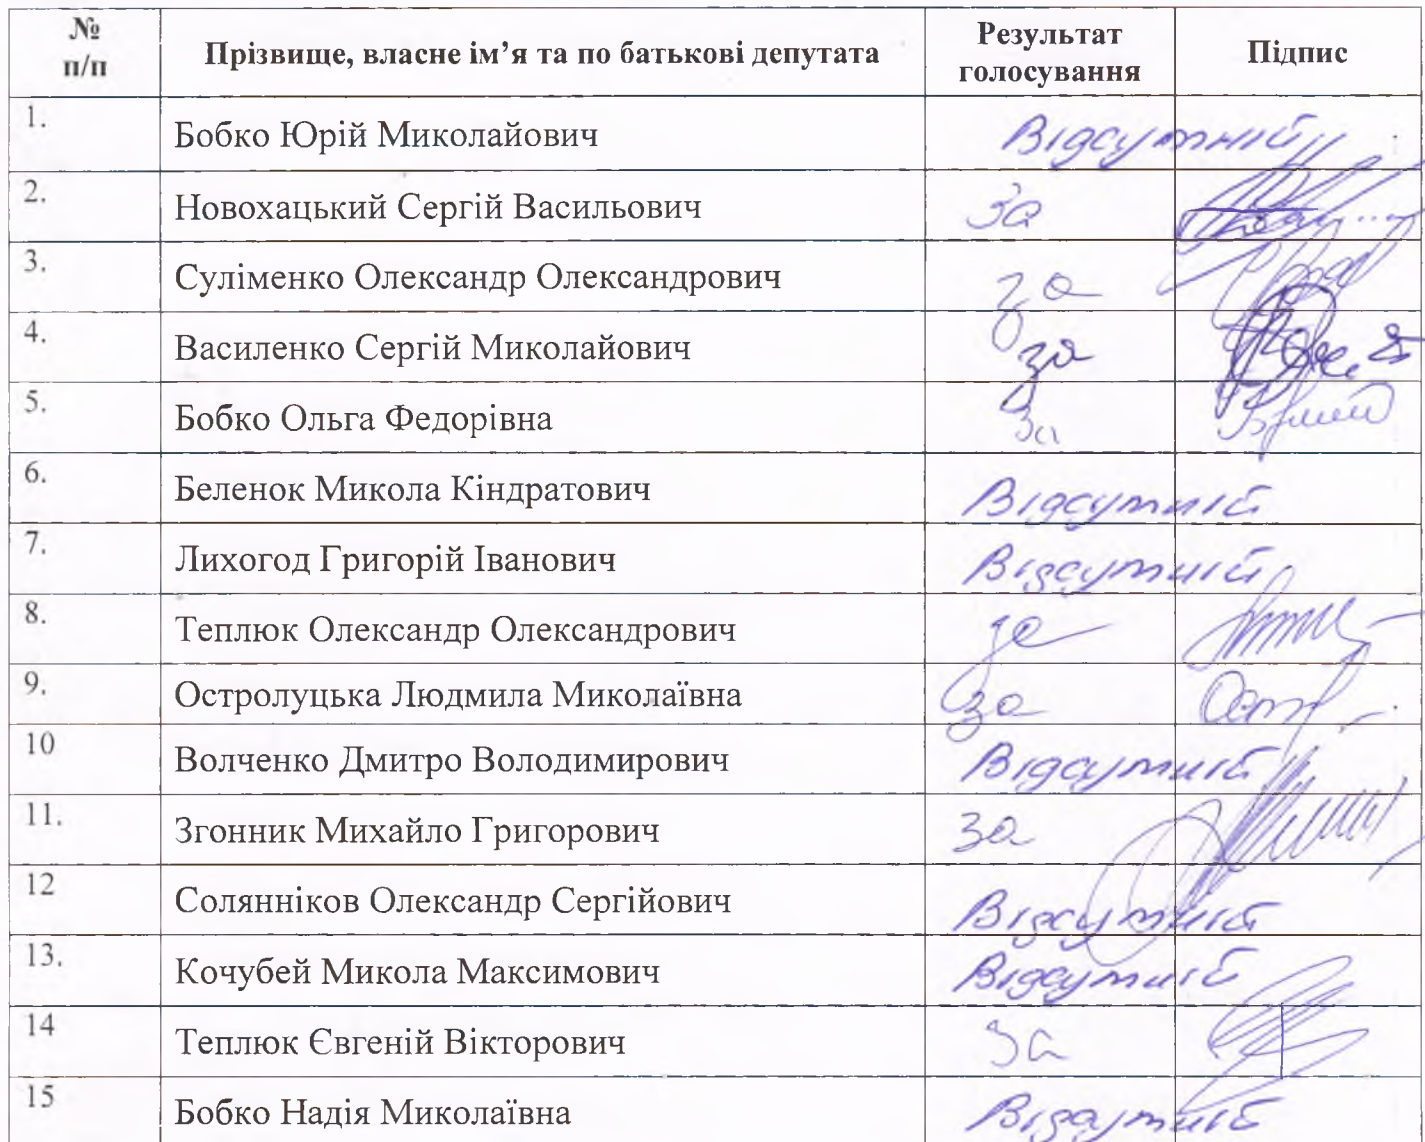 № п/п Прізвище, власне ім’я та по батькові депутата Результат голосування Підпис
1. Бобко Юрій Миколайович Відсутній
2. Новохацький Сергій Васильович За
3. Суліменко Олександр Олександрович за
4. Василенко Сергій Миколайович за
5. Бобко Ольга Федорівна За
6. Беленок Микола Кіндратович Відсутній
7. Лихогод Григорій Іванович Відсутній
8. Теплюк Олександр Олександрович за
9. Остролуцька Людмила Миколаївна за
10 Волченко Дмитро Володимирович Відсутній
11. Згонник Михайло Григорович за
12 Солянніков Олександр Сергійович Відсутній
13. Кочубей Микола Максимович Відсутній
14 Теплюк Євгеній Вікторович За
15 Бобко Надія Миколаївна Відсутній